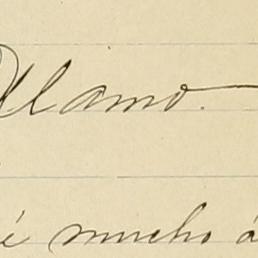 Alamo.
é mucho á